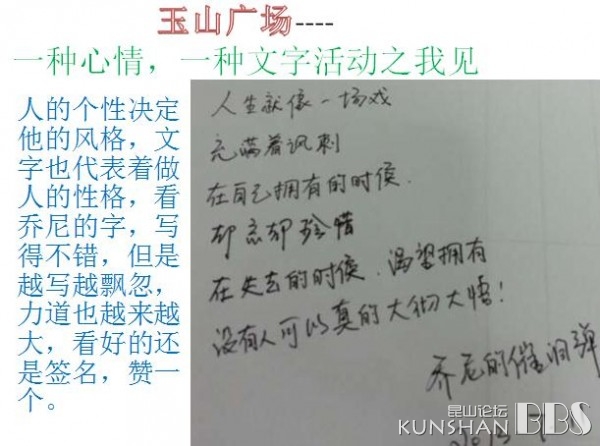 玉山广场----
一种心情，一种文字活动之我见
人的个性决定
他的风格，文
字也代表着做
人的性格，看
乔尼的字，写
得不错，但是
越写越飘忽，
力道也越来越
大，看好的还
是签名，赞一
个。
人生就像一场戏
充满着讽刺
在自己拥有的时候.
却忘却珍惜
在失去的时候.渴望拥有
没有人可以真的大彻大悟!
乔尼的催泪弹
昆山论坛
KUNSHAN BBS